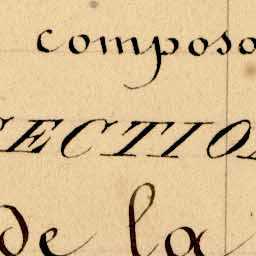 composo
SECTION
de la